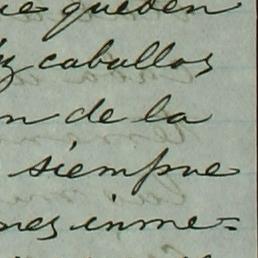 ue queden
z caballos
n de la
siempre
nes inme=